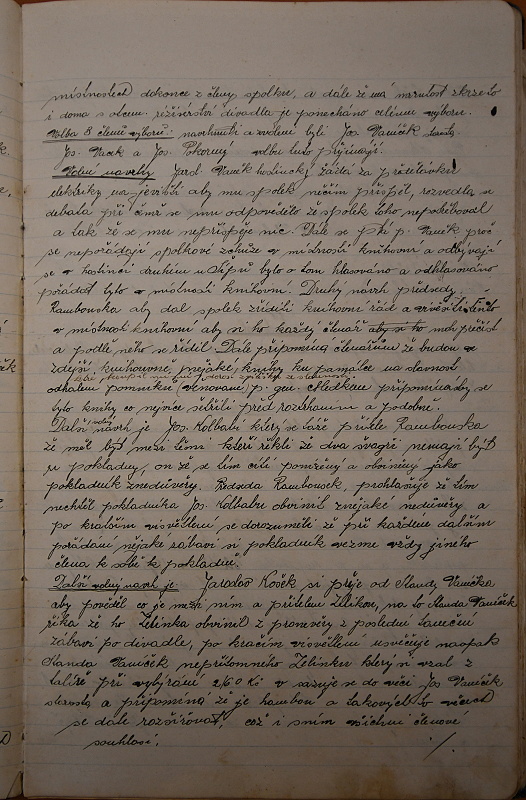 místnostech dokonce z členy spolku, a dále že má mrzutost zkrze to
i doma s otcem. režisérství divadla je ponecháno celému výboru.
Volba 8 členů výboru: navrhnuti a zvoleni byli Jos. Vaníček
Jos. Vacek a Jos. Pokorný volbu tuto přijímají.
Volné návrhy Jard. Vaněk hostinský, žádá za
elektriky na jevišti aby mu spolek něčím přispěl, rozvedla se
debata při čemž se mu odpovědělo že spolek toho nepotřeboval
a tak že se mu nepřispěje nic. Dále se ptá p. Vaněk proč
se nepořádají spolkové schůze v místnosti knihovní a odbývají
se v hostinci druhém bylo o tom hlasováno a odhlasováno
pořádat tyto v místnosti knihovní. Druhý návrh předsedy
Rambouska aby dal spolek zříditi knihovní řád a vyvěsiti tento
v místnost knihovní aby si ho každý čtenář mohl přečíst
a podle něho se řídil. Dále připomíná čtenářům že budou v
zdejší knihovně nějaké knihy ku památce na slavnost
odhalení pomníku (věnované) p. gen. Hledkem připomíná aby se
tyto knihy co nejvíce šetřili před roztrháním a podobně.
Další volný návrh je Jos. Kolbaby který se táže přítele Rambouska
že měl být mezi těmi kteří řekli že dva švagři nemají být
u pokladny, on že se tím cítí ponížený a obviněný jako
pokladník z nedůvěry. Předseda Rambousek, prohlašuje že tím
nechtěl pokladníka Jos. Kolbabu obvinit z nějaké nedůvěry a
po kratším vysvětlení se dorozuměli že při každém dalším
pořádání nějaké zábavi si pokladník vezme vždy jiného
člena k sobě k pokladně.
Další volný návrh je Jaroslav Košék si přeje od Standy Vaníčka
aby pověděl co je mezi ním a přítelem Zelinkou, na to Standa Vaníček
říká že ho Zelinka obvinil z pronevěry z poslední taneční
zábavi po divadle, po kračím vysvětlení usvěčuje naopak
Standa Vaníček nepřítomného Zelinku který si vzal z
talíře při vybírání 2/60 Kč vsazuje se do věci Jos Vaníček
starosta a připomíná že je hanbou a takových to věcech
se dále rozšiřovat, což i sním všichni členové
souhlasí. ./.